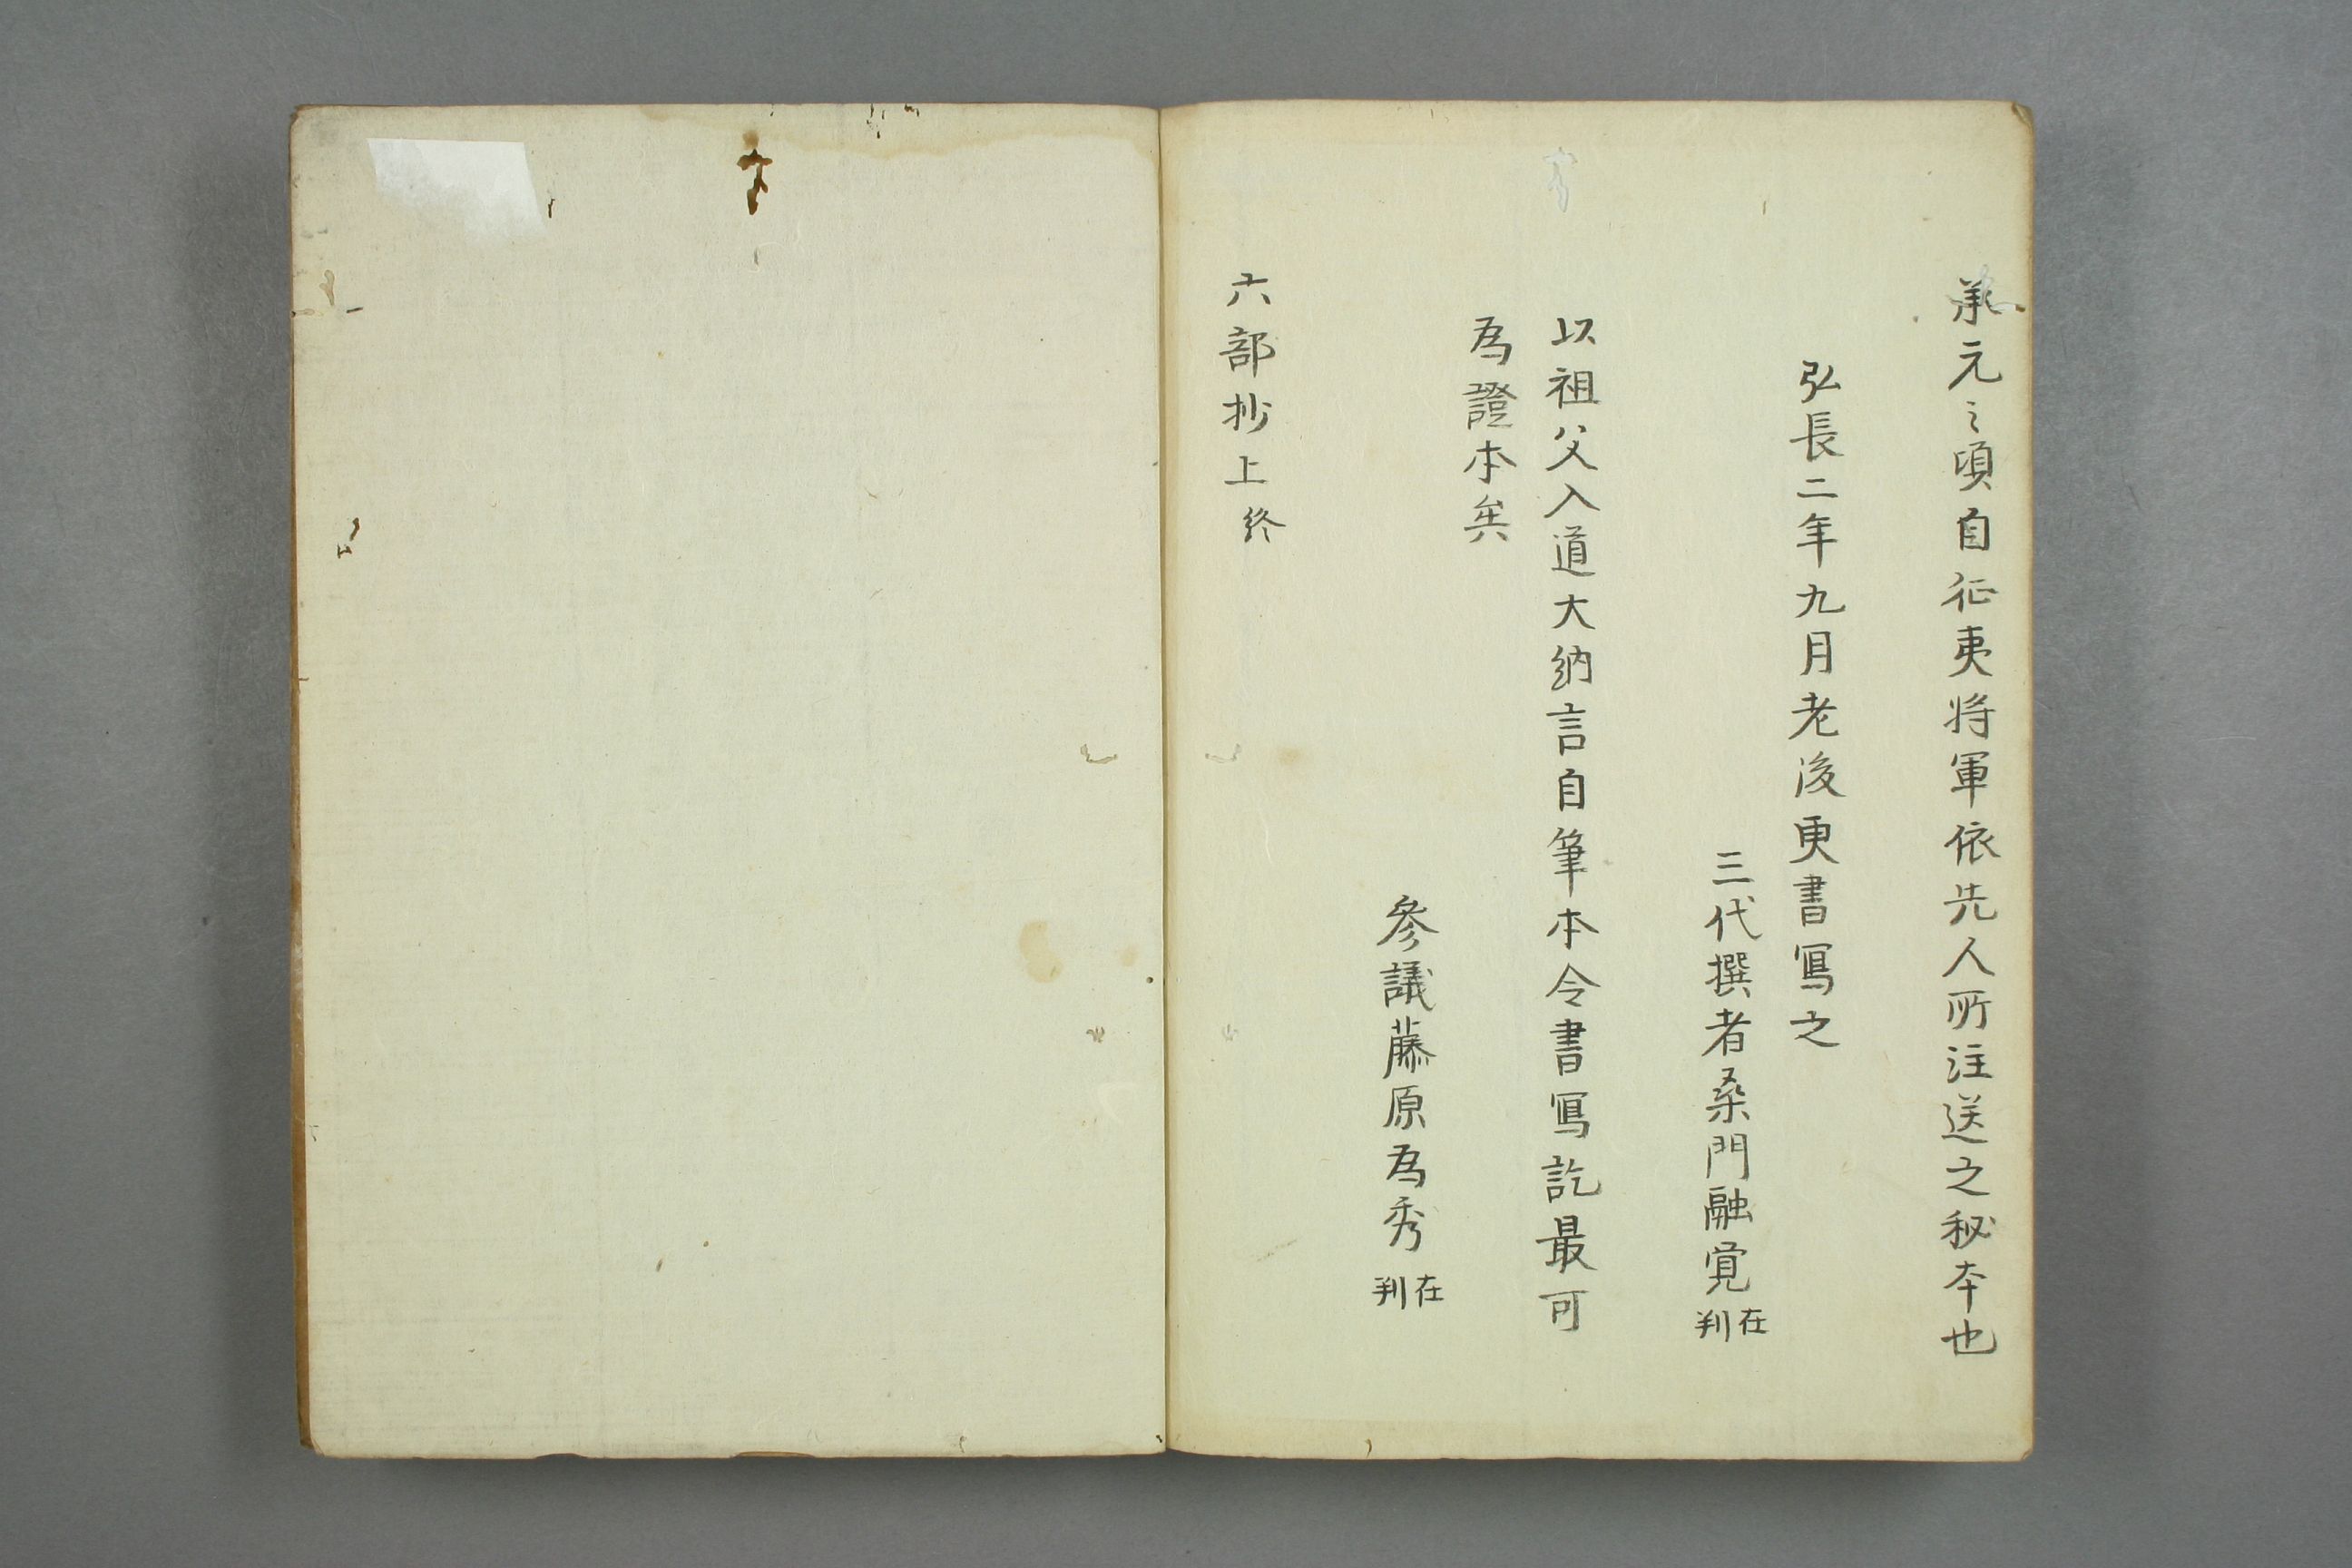 承元之頃自征夷将軍依先人所注送之秘本也
弘長二年九月老後更書寫之
三代撰者桒門融覚在判
以祖父入道大納言自筆本令書寫訖最可
為證本矣
參議藤原為秀在判
六部抄上終